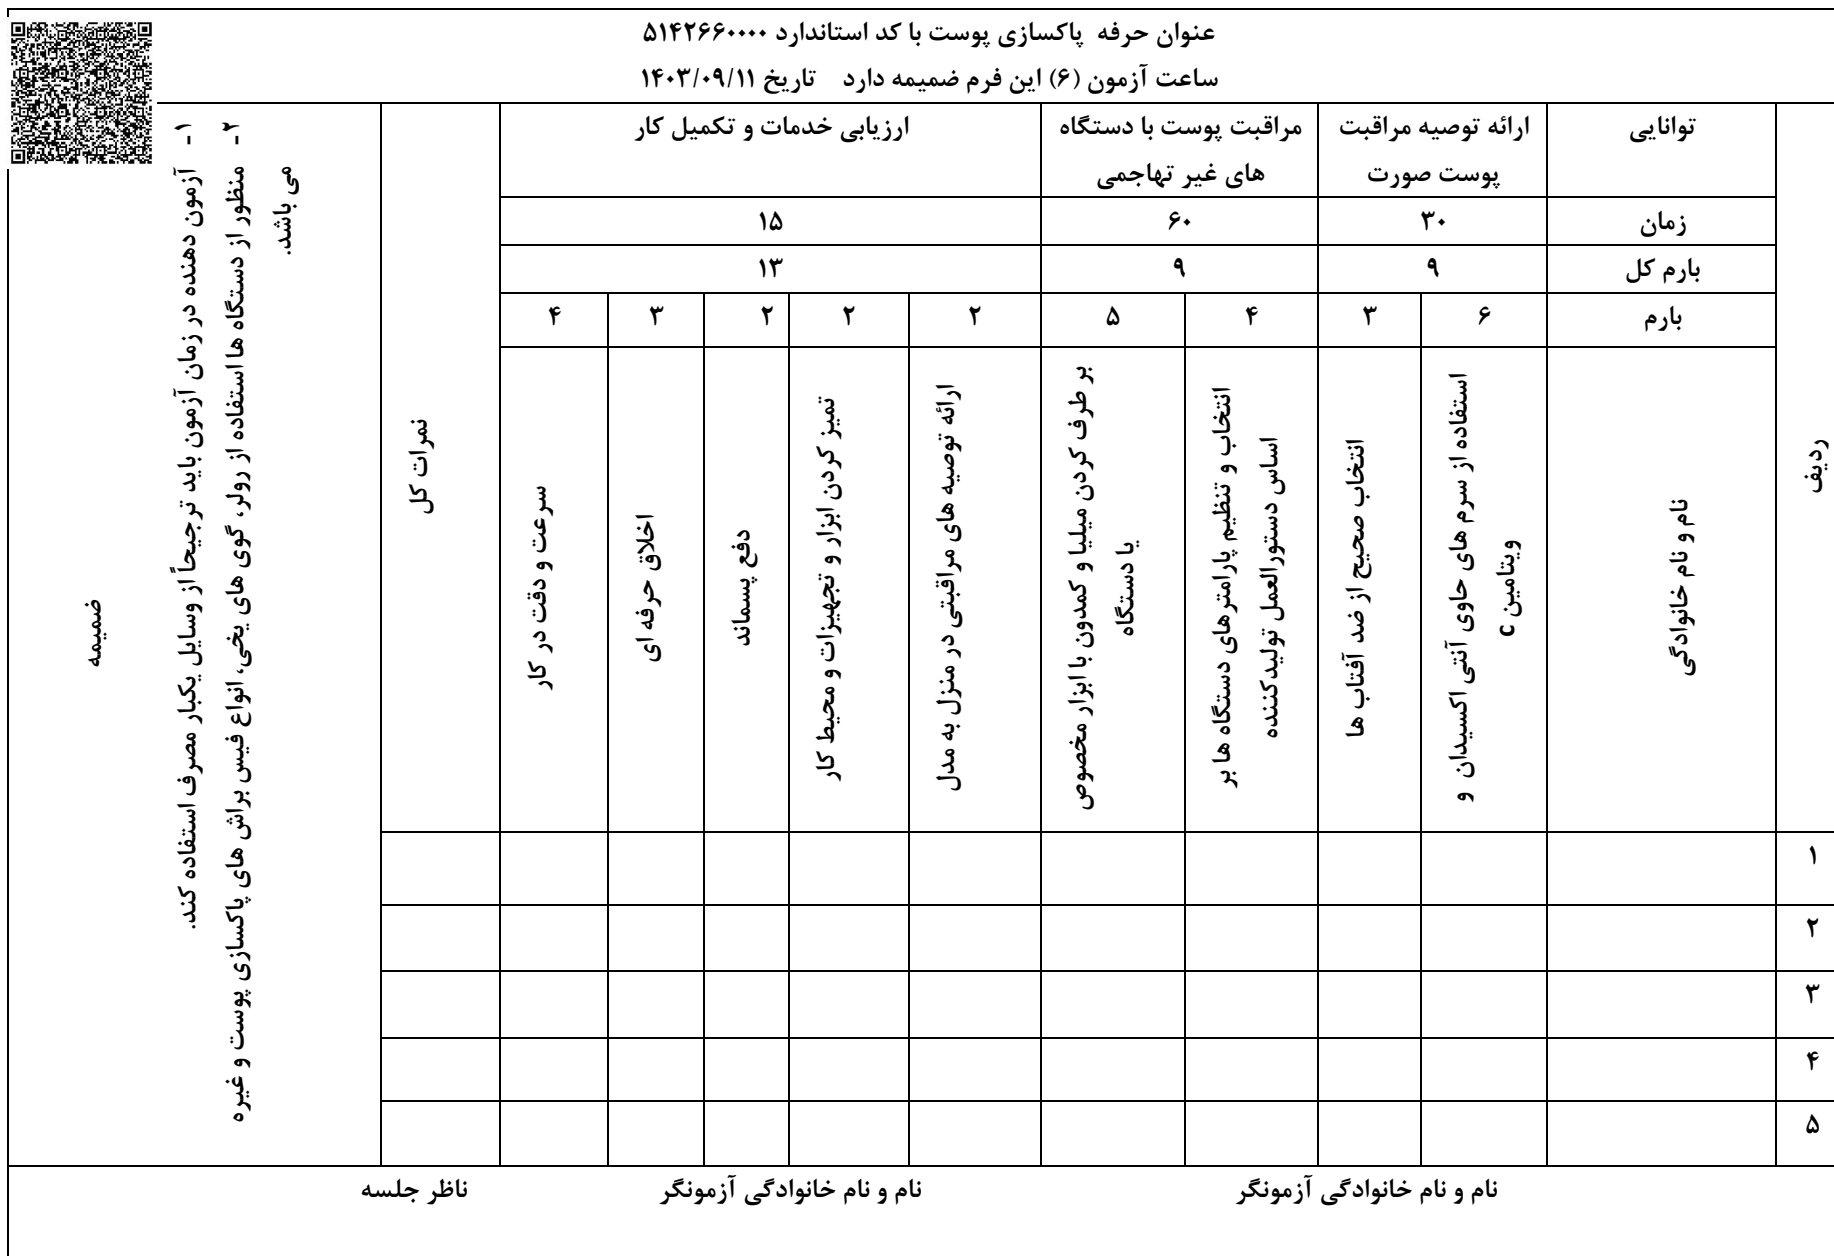 عنوان حرفه پاکسازی پوست با کد استاندارد ۵۱۴۲۶۶۰۰۰۰
ساعت آزمون (۶) این فرم ضمیمه دارد تاریخ ۱۴۰۳/۰۹/۱۱
ردیف
توانایی
ارائه توصیه مراقبت
پوست صورت
مراقبت پوست با دستگاه
های غیر تهاجمی
ارزیابی خدمات و تکمیل کار
زمان
۳۰
۶۰
۱۵
بارم کل
۹
۹
۱۳
بارم
۶
۳
۴
۵
۲
۲
۲
۳
۴
نام و نام خانوادگی
استفاده از سرم های حاوی آنتی اکسیدان و
ویتامین C
انتخاب صحیح از ضد آفتاب ها
انتخاب و تنظیم پارامترهای دستگاه ها بر
اساس دستورالعمل تولیدکننده
بر طرف کردن میلیا و کمدون با ابزار مخصوص
یا دستگاه
ارائه توصیه های مراقبتی در منزل به مدل
تمیز کردن ابزار و تجهیزات و محیط کار
دفع پسماند
اخلاق حرفه ای
سرعت و دقت در کار
نمرات کل
ضمیمه
۱- آزمون دهنده در زمان آزمون باید ترجیحاً از وسایل یکبار مصرف استفاده کند.
۲- منظور از دستگاه ها استفاده از رولر، گوی های یخی، انواع فیس براش های پاکسازی پوست و غیره
می باشد.
۱
۲
۳
۴
۵
نام و نام خانوادگی آزمونگر
نام و نام خانوادگی آزمونگر
ناظر جلسه